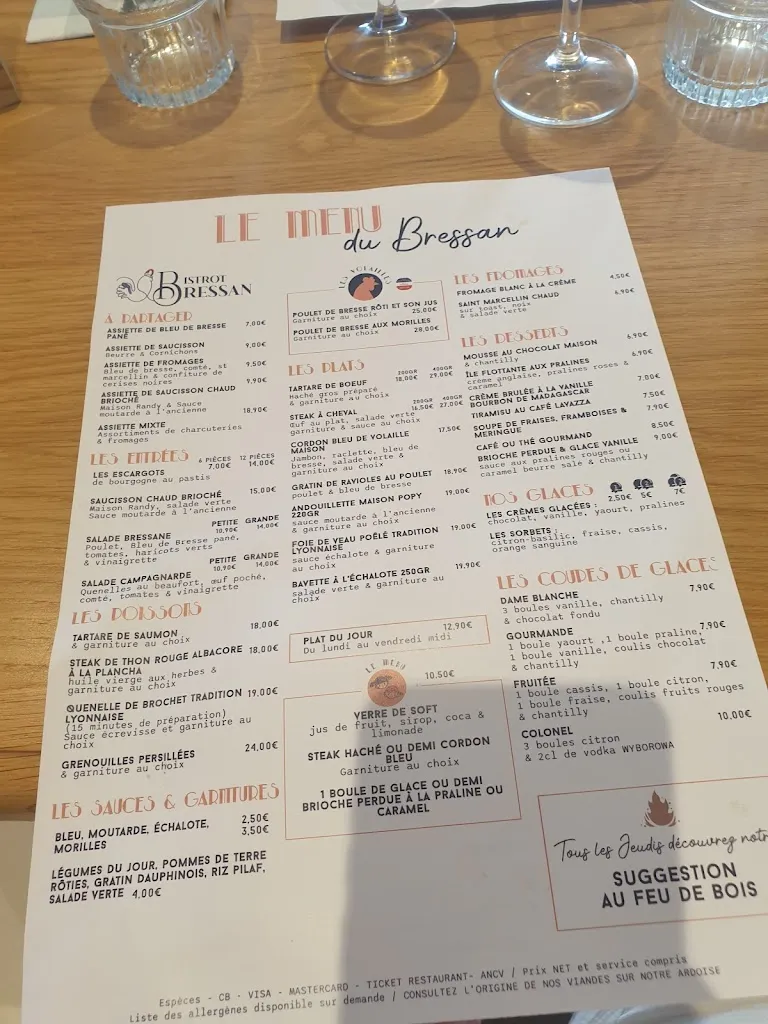 LE MENU
du Bressan
BISTROT
BRESSAN
À PARTAGER
ASSIETTE DE BLEU DE BRESSE 7.00€
PANÉ
ASSIETTE DE SAUCISSON 9.00€
Beurre & Cornichons
ASSIETTE DE FROMAGES 9.50€
Bleu de bresse, comté, st
marcellin & confiture de
cerises noires
ASSIETTE DE SAUCISSON CHAUD 9.90€
BRIOCHÉ
Maison Randy & Sauce
moutarde à l'ancienne
ASSIETTE MIXTE 18.90€
Assortiments de charcuteries
& fromages
LES ENTRÉES
6 PIÈCES 12 PIÈCES
LES ESCARGOTS 7.00€ 14.00€
de bourgogne au pastis
SAUCISSON CHAUD BRIOCHÉ 15.00€
Maison Randy, salade verte
Sauce moutarde à l'ancienne
PETITE GRANDE
SALADE BRESSANE 10.90€ 14.00€
Poulet, Bleu de Bresse pané,
tomates, haricots verts
& vinaigrette
PETITE GRANDE
SALADE CAMPAGNARDE 10.90€ 14.00€
Quenelles au beaufort, œuf poché,
comté, tomates & vinaigrette
LES POISSONS
TARTARE DE SAUMON 18.00€
& garniture au choix
STEAK DE THON ROUGE ALBACORE 18.00€
À LA PLANCHA
huile vierge aux herbes &
garniture au choix
QUENELLE DE BROCHET TRADITION 19.00€
LYONNAISE
(15 minutes de préparation)
Sauce écrevisse et garniture au
choix
GRENOUILLES PERSILLÉES 24.00€
& garniture au choix
LES SAUCES & GARNITURES
BLEU, MOUTARDE, ÉCHALOTE, 2,50€
MORILLES 3,50€
LÉGUMES DU JOUR, POMMES DE TERRE
RÔTIES, GRATIN DAUPHINOIS, RIZ PILAF,
SALADE VERTE 4,00€
LES VOLAILLES
POULET DE BRESSE RÔTI ET SON JUS
Garniture au choix 25.00€
POULET DE BRESSE AUX MORILLES
Garniture au choix 28.00€
LES PLATS
200GR 400GR
TARTARE DE BOEUF 18,00€ 29.00€
Haché gros préparé
& garniture au choix
200GR 400GR
STEAK À CHEVAL 16.50€ 27,00€
Œuf au plat, salade verte
garniture & sauce au choix
CORDON BLEU DE VOLAILLE 17.50€
MAISON
Jambon, raclette, bleu de
bresse, salade verte &
garniture au choix
GRATIN DE RAVIOLES AU POULET 18.90€
poulet & bleu de bresse
ANDOUILLETTE MAISON POPY 19.00€
220GR
sauce moutarde à l'ancienne
& garniture au choix
FOIE DE VEAU POÊLÉ TRADITION 19.00€
LYONNAISE
sauce échalote & garniture
au choix
BAVETTE À L'ÉCHALOTE 250GR 19.90€
salade verte & garniture au
choix
PLAT DU JOUR 12.90€
Du lundi au vendredi midi
LE MENU
10.50€
VERRE DE SOFT
jus de fruit, sirop, coca &
limonade
STEAK HACHÉ OU DEMI CORDON
BLEU
Garniture au choix
1 BOULE DE GLACE OU DEMI
BRIOCHE PERDUE À LA PRALINE OU
CARAMEL
LES FROMAGES
FROMAGE BLANC À LA CRÈME 4,50€
SAINT MARCELLIN CHAUD 6.90€
sur toast, noix
& salade verte
LES DESSERTS
MOUSSE AU CHOCOLAT MAISON 6.90€
& chantilly
ÎLE FLOTTANTE AUX PRALINES 6.90€
crème anglaise, pralines roses &
caramel
CRÈME BRULÉE À LA VANILLE 7.00€
BOURBON DE MADAGASCAR
TIRAMISU AU CAFÉ LAVAZZA 7.50€
SOUPE DE FRAISES, FRAMBOISES & 7.90€
MERINGUE
CAFÉ OU THÉ GOURMAND 8.50€
BRIOCHE PERDUE & GLACE VANILLE 9,00€
sauce aux pralines roses ou
caramel beurre sale & chantilly
NOS GLACES
2.50€ 5€ 7€
LES CRÈMES GLACÉES :
chocolat, vanille, yaourt, pralines
LES SORBETS :
citron-basilic, fraise, cassis,
orange sanguine
LES COUPES DE GLACES
DAME BLANCHE 7,90€
3 boules vanille, chantilly
& chocolat fondu
GOURMANDE 7.90€
1 boule yaourt ,1 boule praline,
1 boule vanille, coulis chocolat
& chantilly
FRUITÉE 7.90€
1 boule cassis, 1 boule citron,
1 boule fraise, coulis fruits rouges
& chantilly
COLONEL 10.00€
3 boules citron
& 2cl de vodka WYBOROWA
Tous les Jeudis découvrez notr
SUGGESTION
AU FEU DE BOIS
Espèces - CB - VISA - MASTERCARD - TICKET RESTAURANT- ANCV / Prix NET et service compris
Liste des allergènes disponible sur demande / CONSULTEZ L'ORIGINE DE NOS VIANDES SUR NOTRE ARDOISE